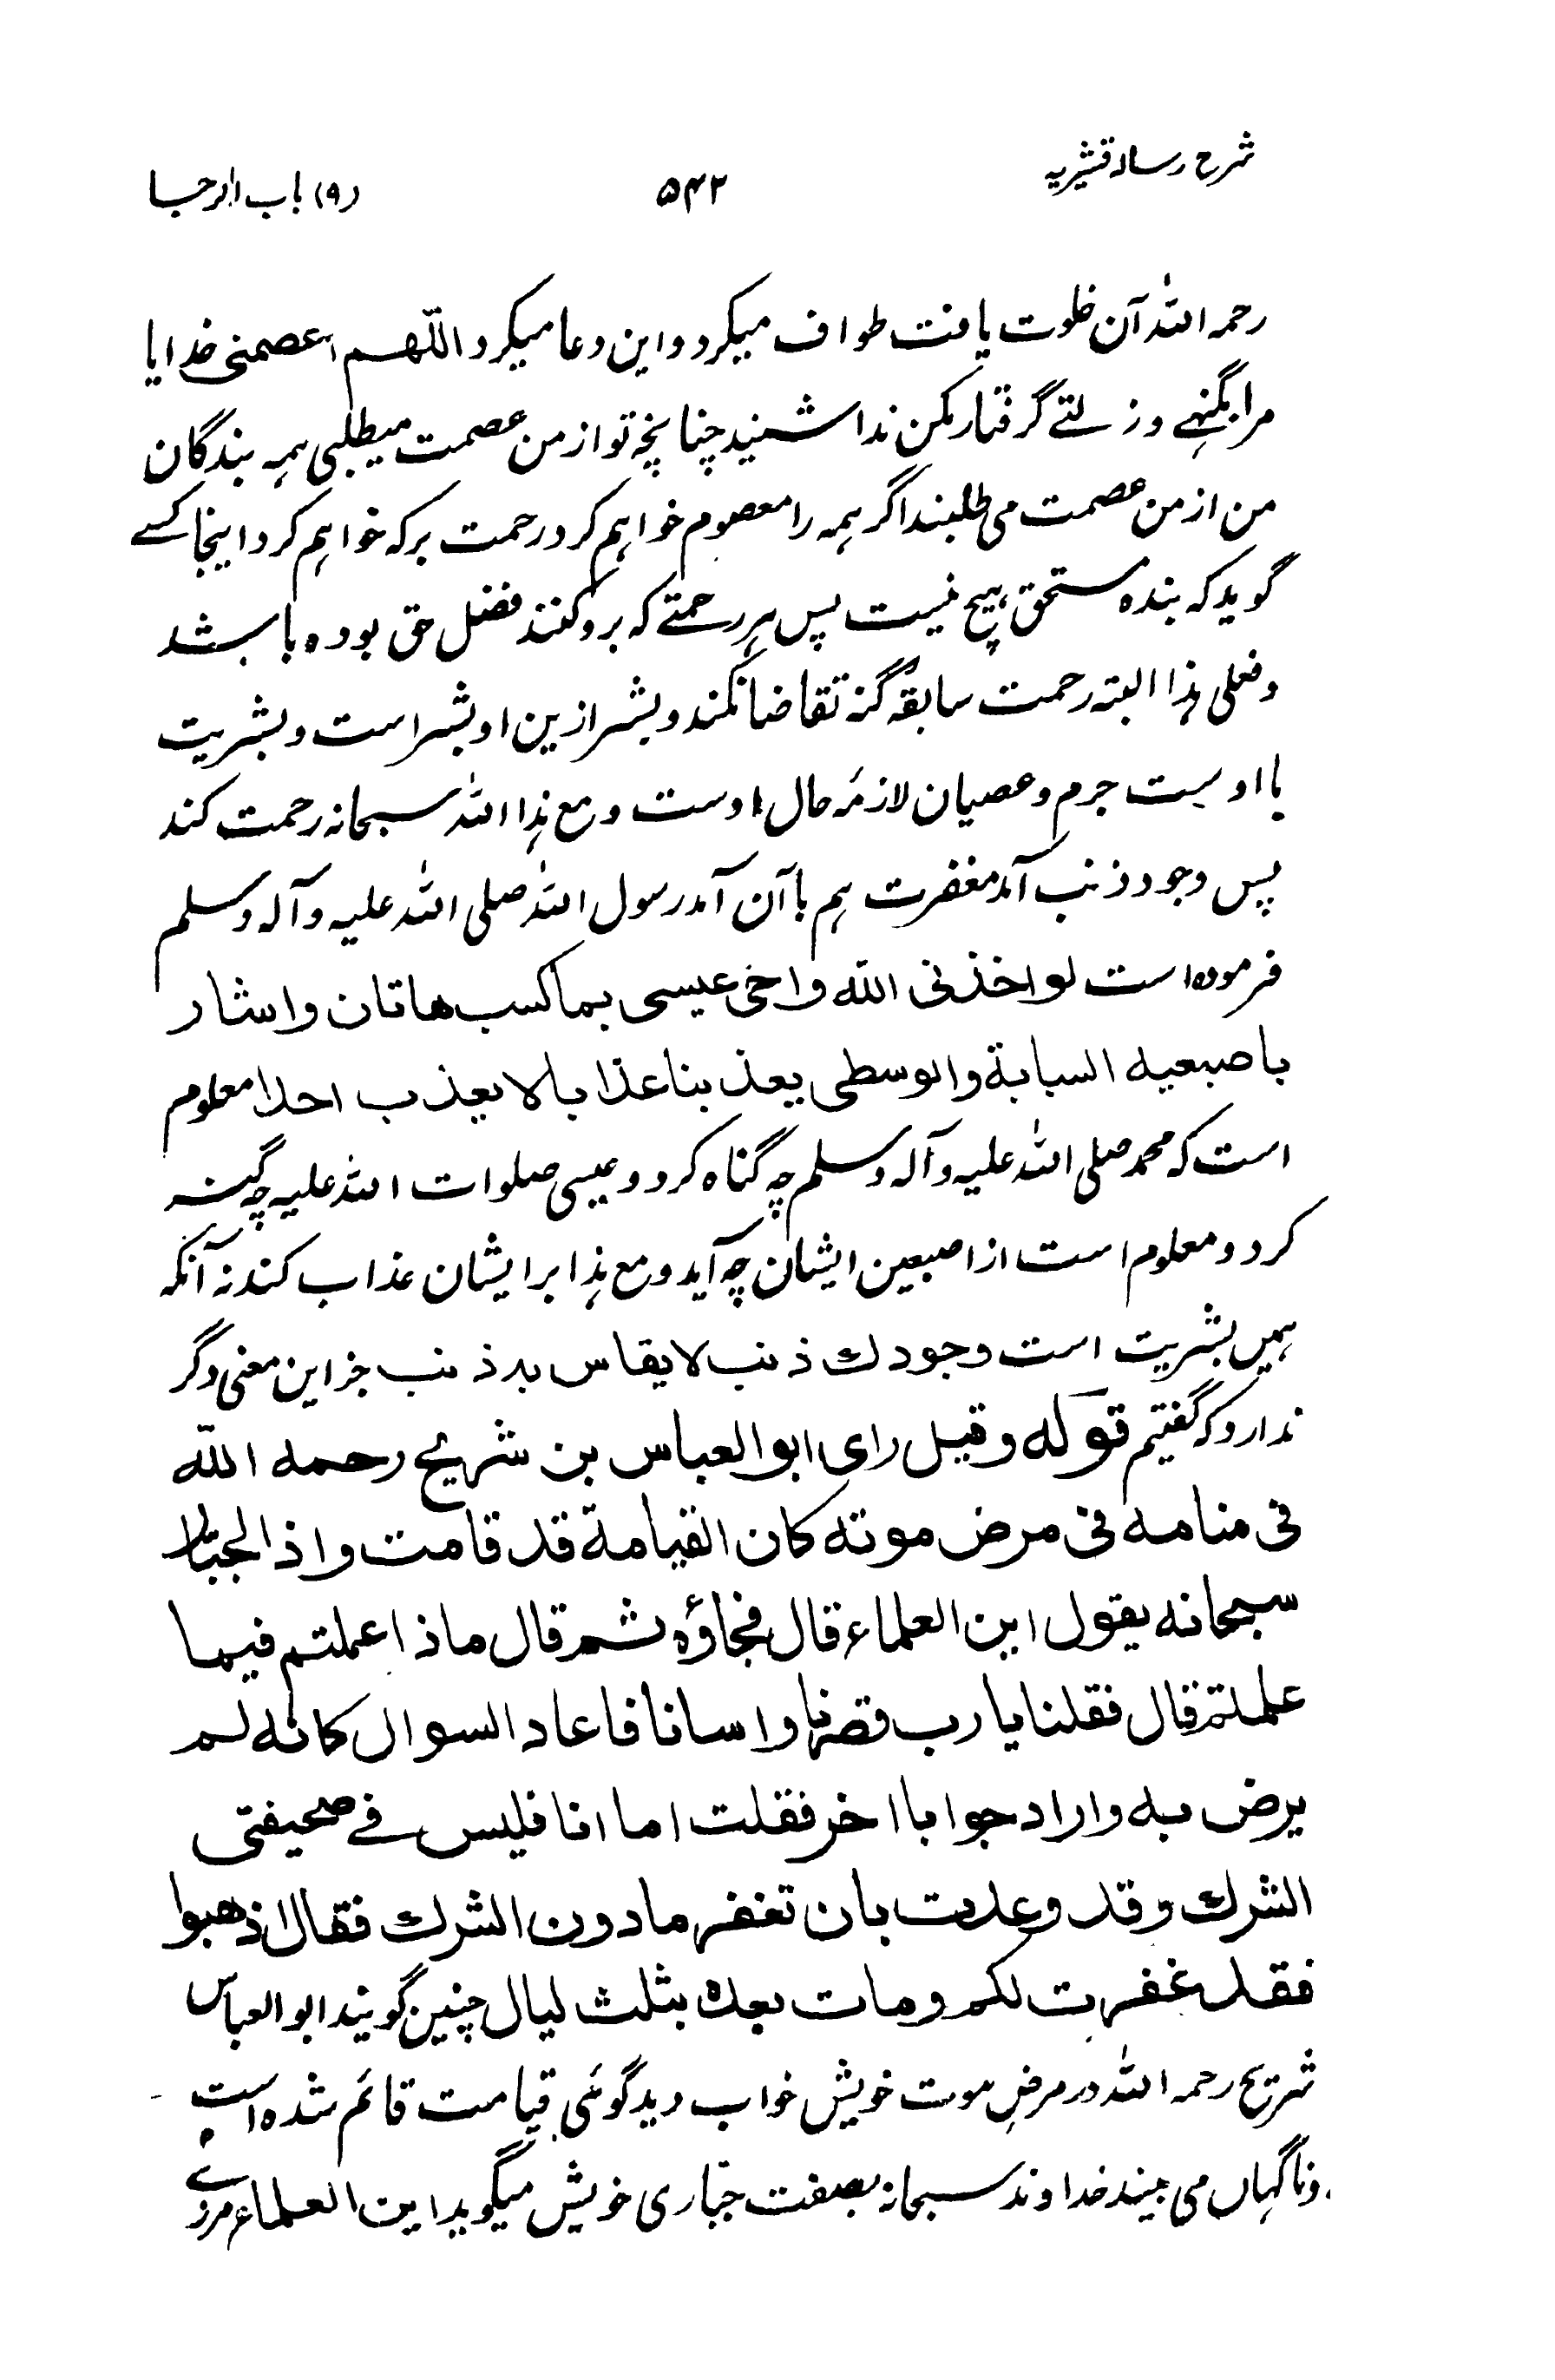 شرح رسالہ قشیریہ
۵۴۲
(۹) باب الرجا
رحمہ اللہ آن خلوت یافت طواف میکرد و این دعا میکرد اللّٰهم اعصمنی خدایا
مرا بگنہے و زلتے گرفتار مکن ندا شنید چنانچہ تو از من عصمت میطلبی ہمہ بندگان
من از من عصمت می طلبند اگر ہمہ را معصوم خواہم کرد رحمت برکہ خواہم کرد اینجا کسے
گوید کہ بندہ مستحق ہیچ نیست پس ہر رحمتے کہ برو کنند فضل حق بودہ باشد
و فعلی ہذا البتہ رحمت سابقہ گنہ تقاضا نکند و بشر ازین او بشر است و بشریت
با اوست جرم و عصیان لازمۂ حال اوست و مع ہذا اللہ سبحانہ رحمت کند
پس وجود ذنب آمد مغفرت ہم باآن آمد رسول اللہ صلی اللہ علیہ وآلہ وسلم
فرمودہ است لو اخذنی الله واخی عیسی بما کسب هاتان واشار
باصبعیه السبابة والوسطی یعذبنا عذابا لا یعذب احدا معلوم
است کہ محمد صلی اللہ علیہ وآلہ وسلم چہ گناہ کرد و عیسی صلوات اللہ علیہ چہ گنہ
کرد و معلوم است از اصبعین ایشان چہ آید و مع ہذا بر ایشان عذاب کند نہ آنکہ
ہمیں بشریت است وجودك ذنب لا یقاس به ذنب جز این معنی دگر
ندارد کہ گفتیم قوله وقیل رای ابو العباس بن شریح رحمه الله
فی منامه فی مرض موته کان القیامة قد قامت واذا الجبار
سبحانه یقول این العلماء قال فجاؤه ثم قال ماذا عملتم فیما
علمتم قال فقلنا یا رب قصرنا واسانا فاعاد السوال کانه لم
یرض به واراد جوابا اخر فقلت اما انا فلیس فے صحیفتی
الشرك وقد وعدت بان تغفر مادون الشرك فقال اذهبوا
فقد غفرت لکم ومات بعده بثلث لیال چنین گویند ابو العباس
شریح رحمہ اللہ در مرض موت خویش خواب دید گوئی قیامت قائم شدہ است
و ناگہاں می بیند خداوند سبحانہ بصفت جباری خویش میگوید این العلماء مرزے